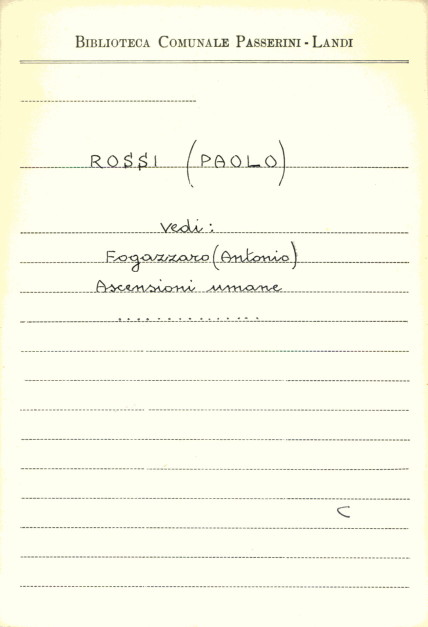 BIBLIOTECA COMUNALE PASSERINI - LANDI
ROSSI (PAOLO)
vedi:
Fogazzaro (Antonio)
Ascensioni umane
...............
C